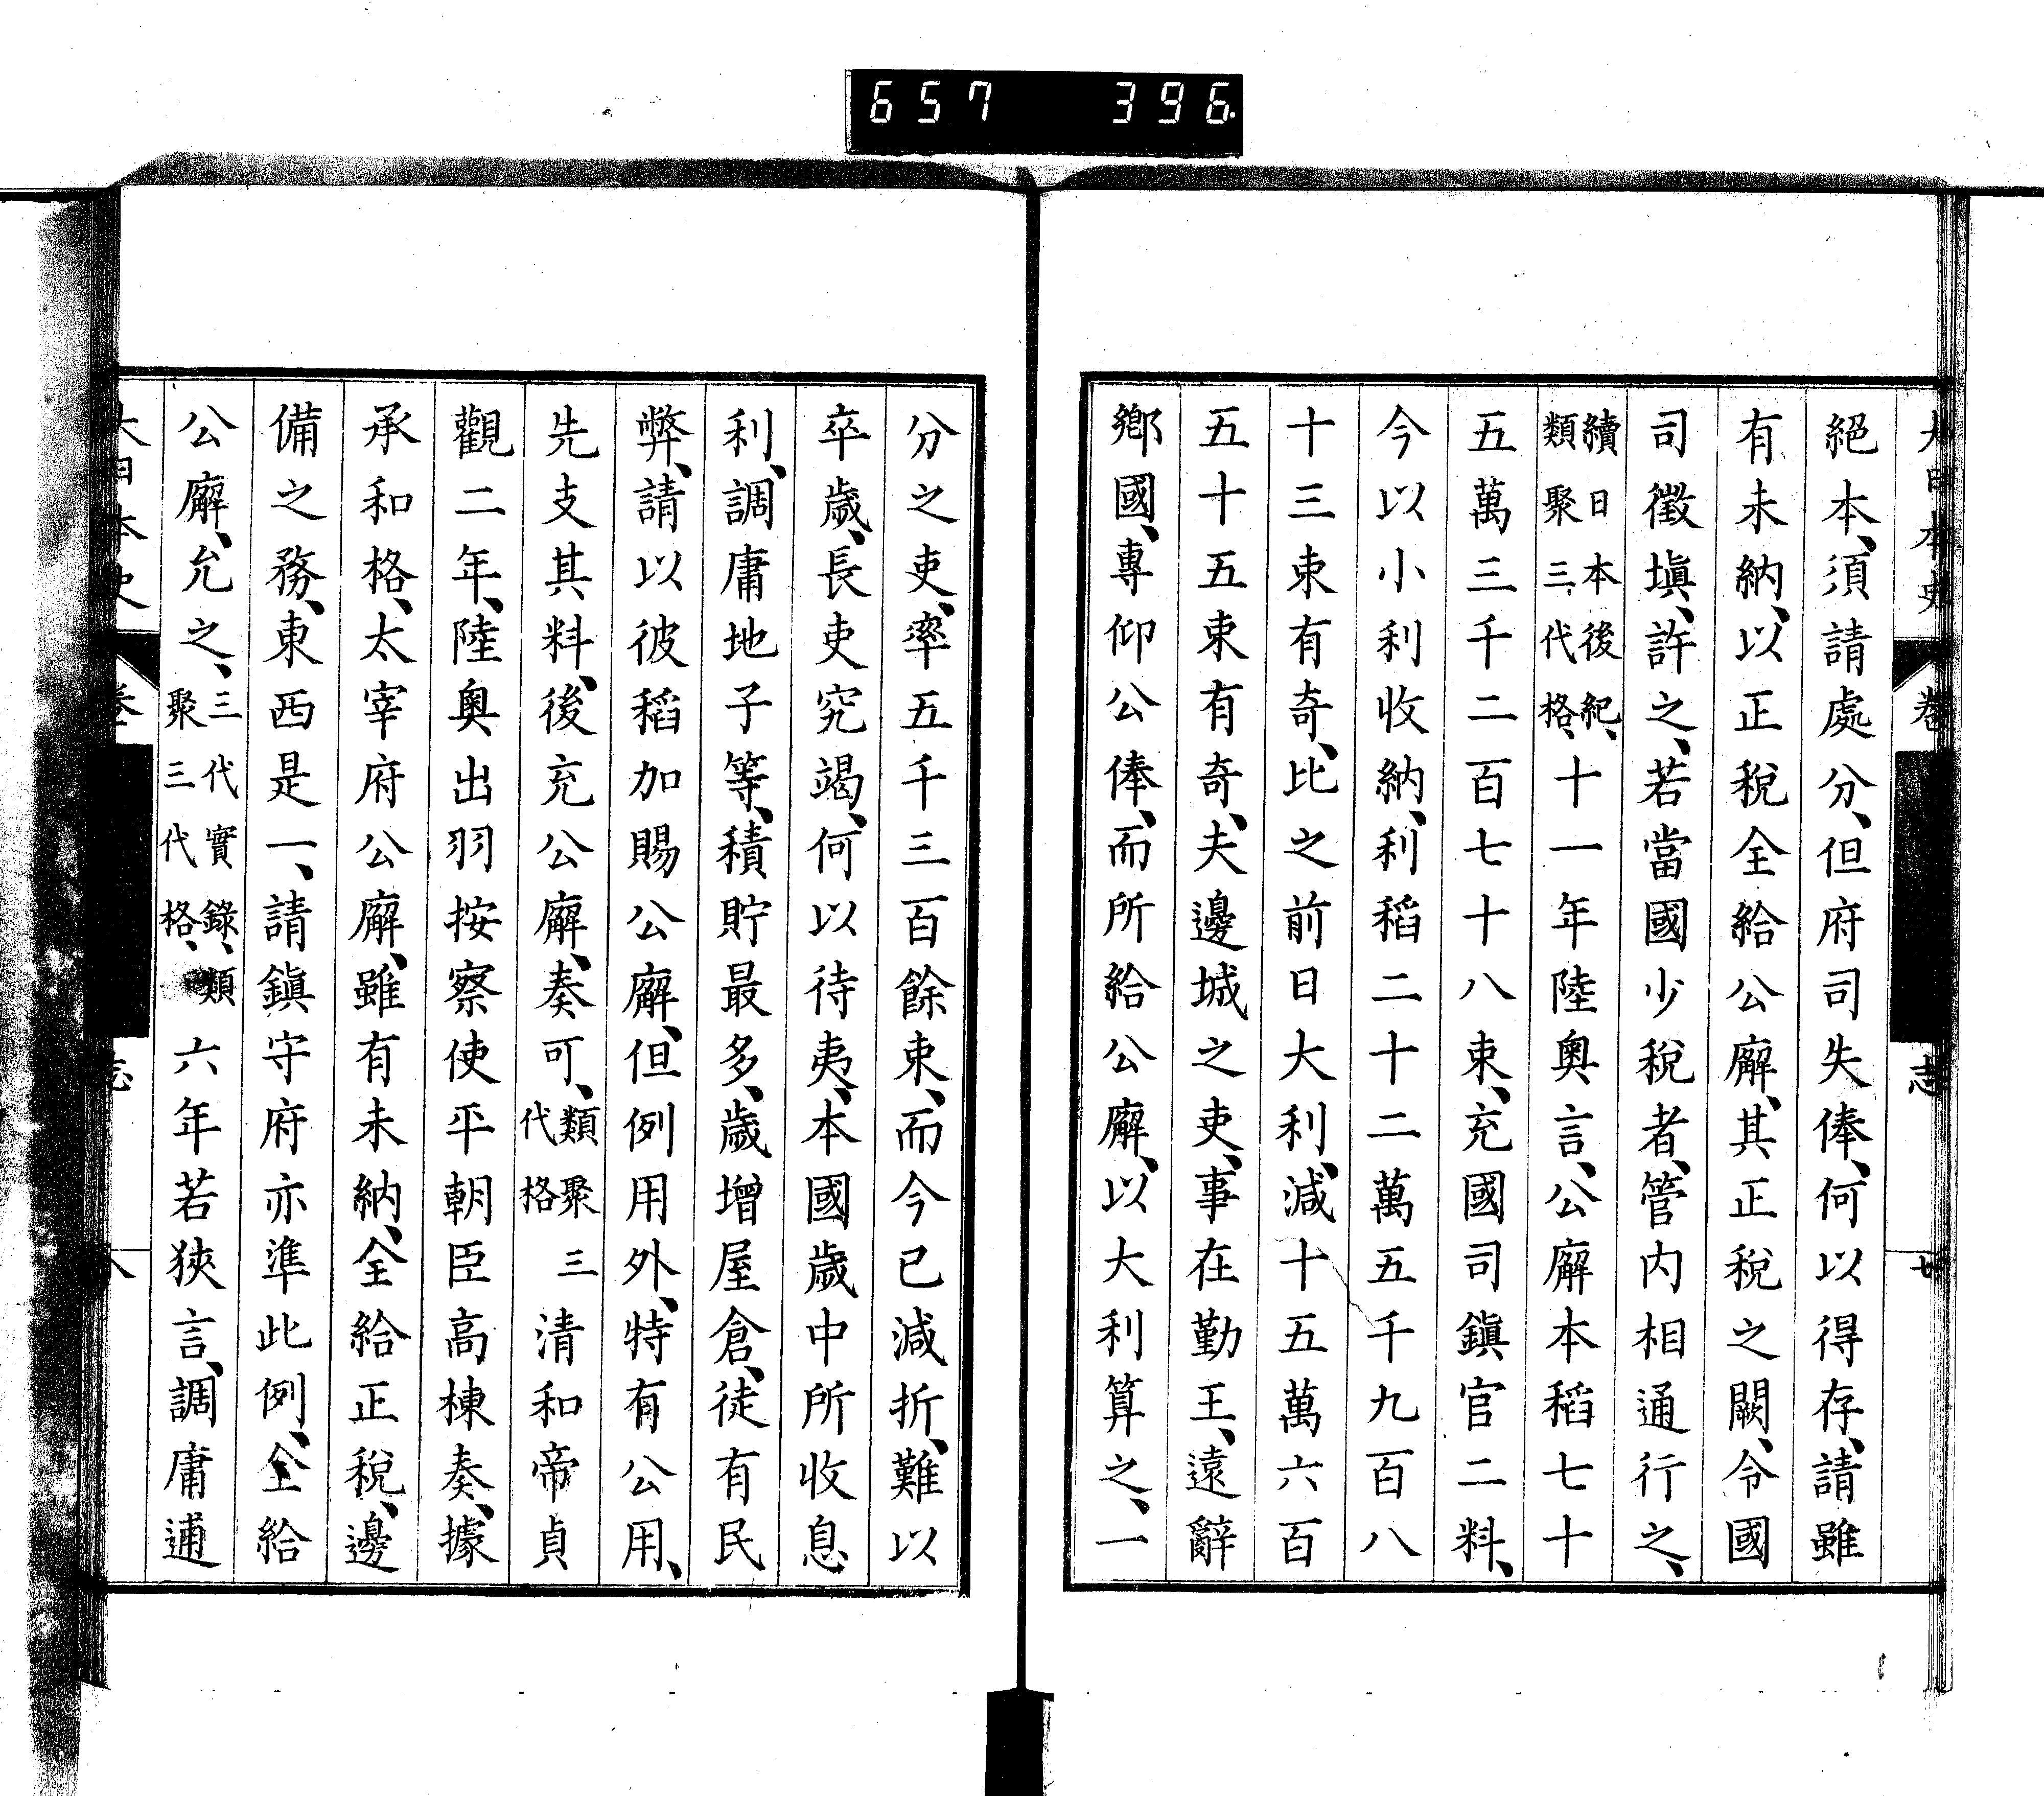 657 396
大日本史 卷 志 七
絕本、須請處分、但府司失俸、何以得存、請雖
有未納、以正稅全給公廨、其正稅之闕、令國
司徵塡、許之、若當國少稅者、管内相通行之、
續日本後紀、類聚三代格、十一年陸奧言、公廨本稻七十
五萬三千二百七十八束、充國司鎭官二料、
今以小利收納、利稻二十二萬五千九百八
十三束有奇、比之前日大利、減十五萬六百
五十五束有奇、夫邊城之吏、事在勤王、遠辭
鄕國、專仰公俸、而所給公廨、以大利算之、一
分之吏、率五千三百餘束、而今已減折、難以
卒歲、長吏究竭、何以待夷、本國歲中所收息
利、調庸地子等、積貯最多、歲增屋倉、徒有民
弊、請以彼稻加賜公廨、但例用外、特有公用、
先支其料、後充公廨、奏可、類聚三代格 清和帝貞
觀二年、陸奧出羽按察使平朝臣高棟奏、據
承和格、太宰府公廨、雖有未納、全給正稅、邊
備之務、東西是一、請鎭守府亦準此例、全給
公廨、允之、三代實錄、類聚三代格、六年若狹言、調庸逋
大日本史 卷 志